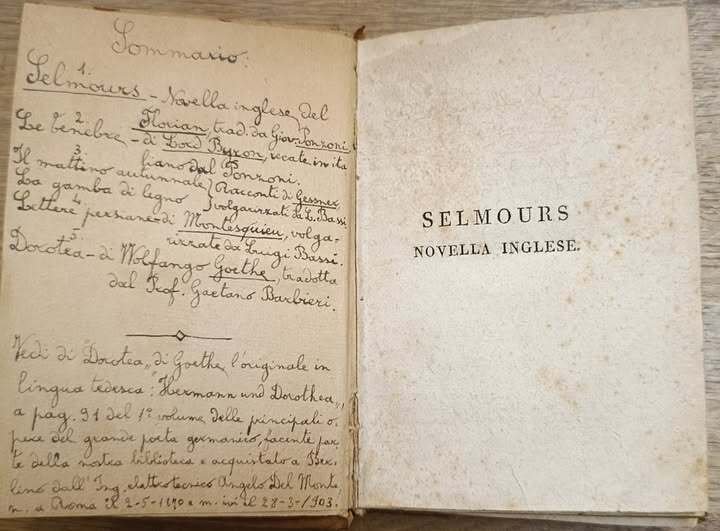 Sommario:
1.
Selmours - Novella inglese del
Florian, trad. da Giov. Ponzoni.
2.
Le tenebre - di Lord Byron, recate in ita
liano dal Ponzoni.
3.
Il mattino autunnale) Racconti di Gessner,
La gamba di legno ) volgarizzati da L. Bassi
4.
Lettere persiane - di Montesquieu, volga-
rizzate da Luigi Bassi.
5.
Dorotea - di Wolfango Goethe, tradotta
dal Prof. Gaetano Barbieri.
Vedi di "Dorotea" di Goethe, l'originale in
lingua tedesca: "Hermann und Dorothea",
a pag. 91 del 1º volume delle principali o-
pere del grande poeta germanico, facente par-
te della nostra biblioteca e acquistato a Ber-
lino dall'Ing. elettrotecnico Angelo Del Monte
n. a Roma il 2-5-1870 e m. ivi il 28-3-1903.
SELMOURS
NOVELLA INGLESE.